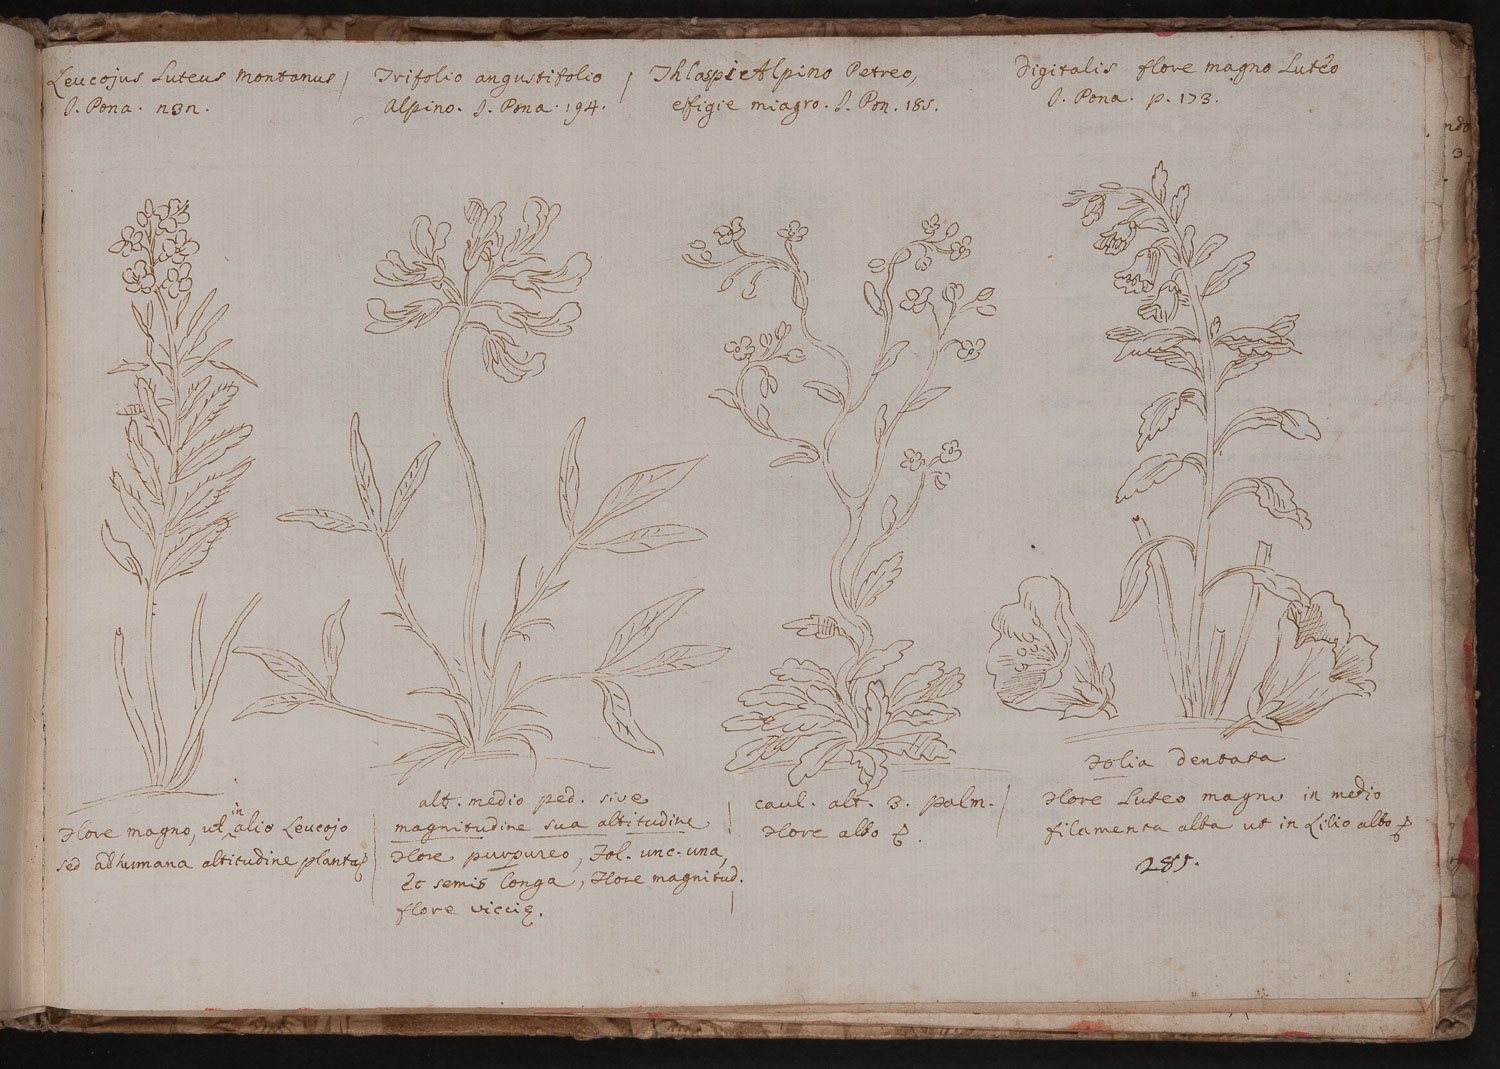 Leucojus Luteus Montanus
J. Pona. n3n.
Trifolio angustifolio
Alpino. J. Pona. 194.
Thlaspie Alpino Petreo,
effigie miagro. J. Pon. 185.
Digitalis flore magno Luteo
J. Pona. p. 173.
Flore magno, ut in alio Leucojo
sed ad humana altitudine planta
alt. medio ped. sive
magnitudine sua altitudine
Flore purpureo, Fol. unc. una,
&c semis longa, Flore magnitud.
flore viccię.
caul. alt. 3. palm.
Flore albo
Folia dentata
Flore Luteo magno in medio
filamenta alba ut in Lilio albo
285.